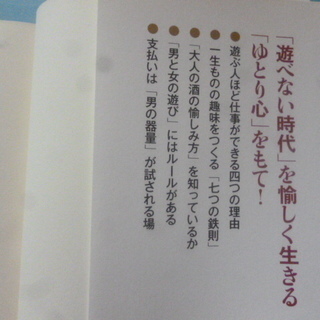 「遊べない時代」を愉しく生きる
「ゆとり心」をもて！
●遊ぶ人ほど仕事ができる四つの理由
●一生ものの趣味をつくる「七つの鉄則」
●「大人の酒の愉しみ方」を知っているか
●「男と女の遊び」にはルールがある
●支払いは「男の器量」が試される場